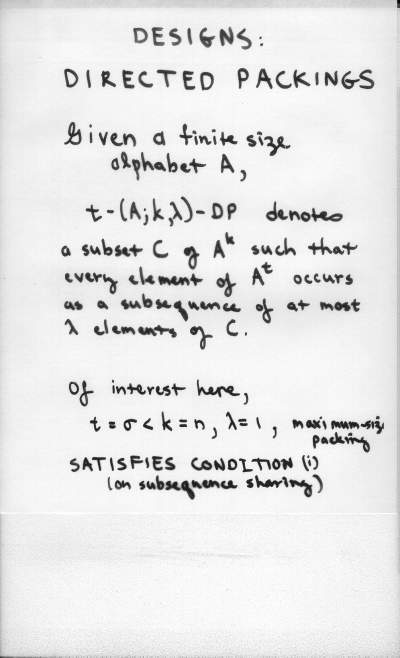 DESIGNS:
DIRECTED PACKINGS
Given a finite size
alphabet A,
t-(A;k,λ)-DP denotes
a subset C of Aᵏ such that
every element of Aᵗ occurs
as a subsequence of at most
λ elements of C.
Of interest here,
t = σ < k = n, λ = 1, maximum-size
packing
SATISFIES CONDITION (i)
(on subsequence sharing)